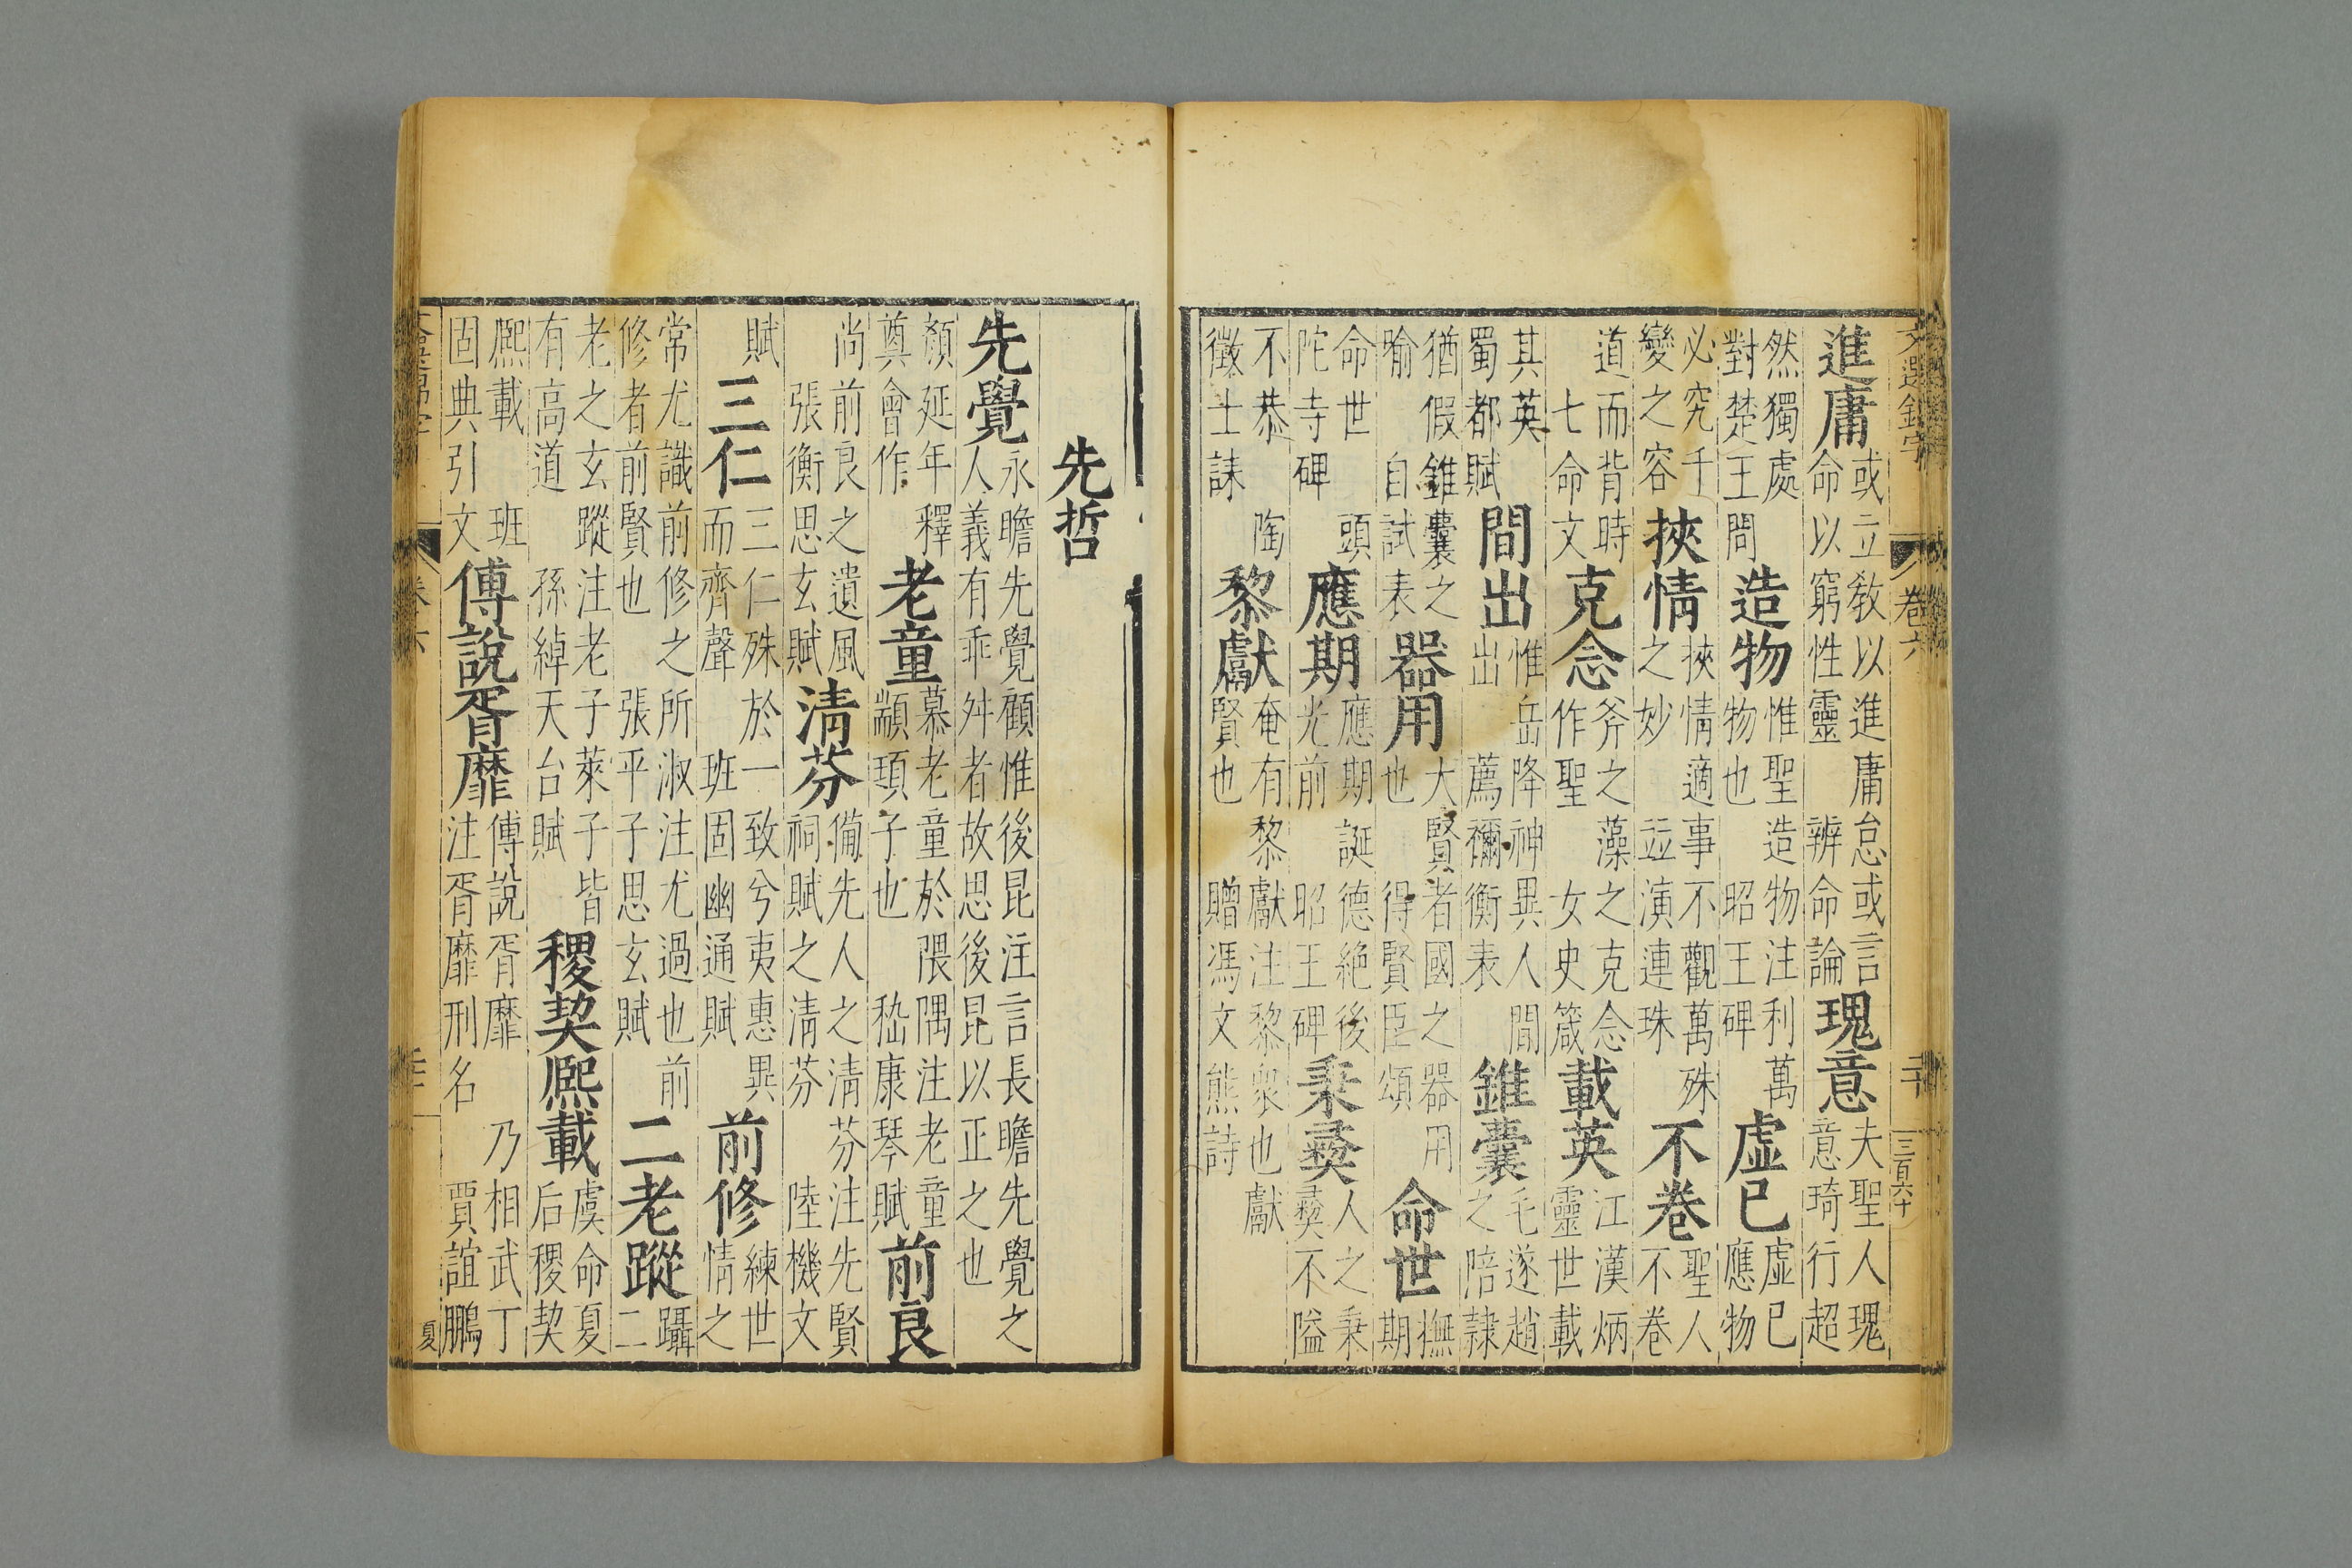 文選錦字 卷六 二十 三百六十
進庸 或立敎以進庸怠或言命以窮性靈 辨命論 瑰意 夫聖人瑰意琦行超
然獨處 對楚王問 造物 惟聖造物注利萬物也 昭王碑 虛已 虛已應物
必究千變之容 挾情 挾情適事不觀萬殊之妙 竝演連珠 不卷 聖人不卷
道而背時 七命文 克念 斧之藻之克念作聖 女史箴 載英 江漢炳靈世載
其英 蜀都賦 間出 惟岳降神異人間出 薦禰衡表 錐囊 毛遂趙之陪隷
猶假錐囊之喻 自試表 器用 大賢者國之器用也 得賢臣頌 命世 撫期
命世 頭陀寺碑 應期 應期誕德絶後光前 昭王碑 秉彝 人之秉彝不隘
不恭 陶徵士誄 黎獻 奄有黎獻注黎衆也獻賢也 贈馮文熊詩
先哲
先覺 永瞻先覺顧惟後昆注言長瞻先覺之人義有乖舛者故思後昆以正之也
顏延年釋奠會作 老童 慕老童於隈隅注老童顓頊子也 嵇康琴賦 前良
尚前良之遺風 張衡思玄賦 清芬 備先人之清芬注先賢祠賦之清芬 陸機文
賦 三仁 三仁殊於一致兮夷惠異而齊聲 班固幽通賦 前修 練世情之
常尤識前修之所淑注尤過也前修者前賢也 張平子思玄賦 二老蹤 躡二
老之玄蹤注老子萊子皆有高道 孫綽天台賦 稷契熈載 虞命夏后稷契
熈載 班固典引文 傅說胥靡 傅說胥靡乃相武丁注胥靡刑名 賈誼鵬
卷六 夏